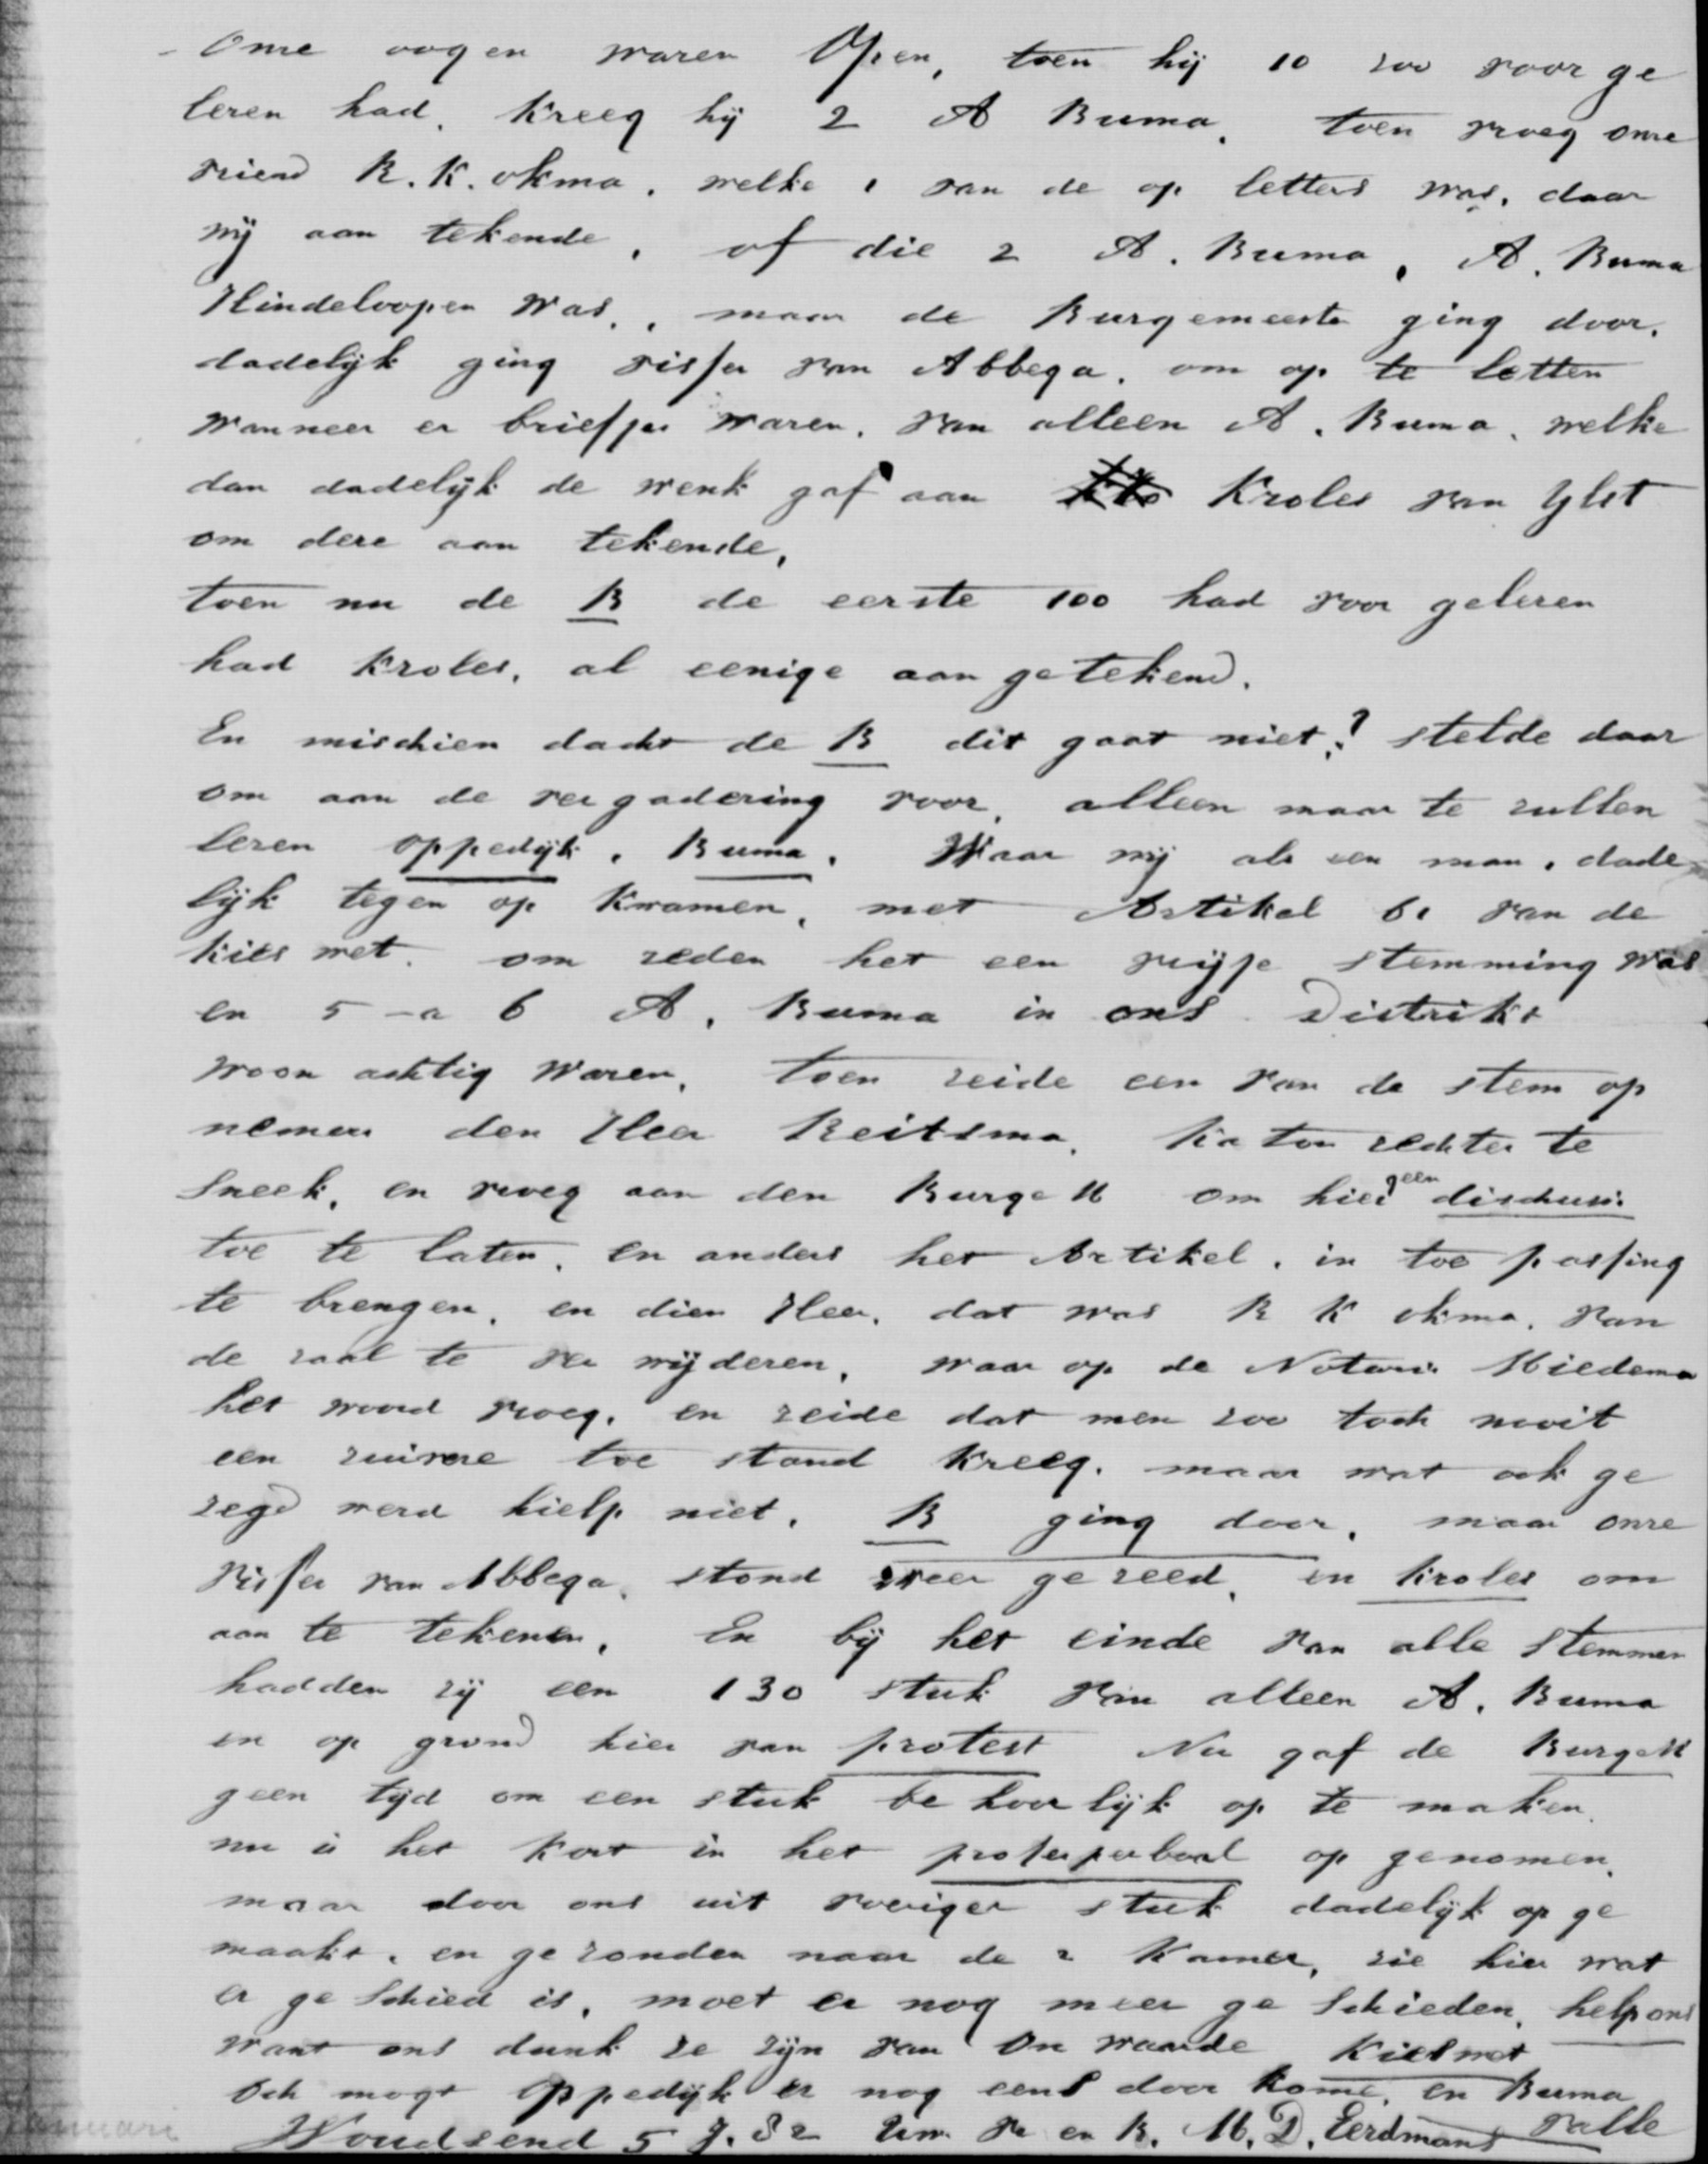 Onze oogen waren Open, toen hij 10 zoo voor ge
lezen had, kreeg hij 2 A Buma, toen vroeg onze
vriend R. K. okma. welke 1 van de op letters was, daar
wij aan tekende, of die 2 A. Buma, A. Buma
Hindeloopen was,, maar de Burgemeester ging door.
dadelijk ging visser van Abbega. om op te letten
wanneer er briefjes waren, van alleen A. Buma, welke
dan dadelijk de wenk gaf aan Kroles van Ylst
om deze aan tekende,
toen nu de B de eerste 100 had voor gelezen
had kroles, al eenige aan getekend.
En mischien dacht de B dit gaat niet? stelde daar
om aan de vergadering voor, alleen maar te zullen
lezen oppedijk. Buma. Waar wij als een man. dade
lijk tegen op kwamen, met Artikel 61 van de
kies wet. om reden het een vrije stemming was
en 5 - a 6 A, Buma in ons Distrikt
woon achtig waren, toen zeide een van de stem op
nemers den Heer Reitsma, Ka ton rechter te
Sneek, en vroeg aan den Burge M om hier geen discussi
toe te laten, en anders het Artikel, in toe passing
te brengen, en dien Heer, dat was R K okma, van
de zaal te ver wijderen, waar op de Notaris Miedema
het woord vroeg, en zeide dat men zoo toch nooit
een zuivere toe stand kreeg. maar wat ook ge
zegd werd hielp niet. B ging door, maar onze
visser van Abbega, stond weer gereed, en kroles om
aan te tekenen, En bij het einde van alle stemmen
hadden zij een 130 stuk van alleen A. Buma
en op grond hier van protest Nu gaf de BurgeM
geen tijd om een stuk be hoor lijk op te maken,
nu is het kort in het prosesperbaal op genomen,
maar door ons uit voeriger stuk dadelijk op ge
maakt, en ge zonden naar de 2 Kamer, zie hier wat
er ge schied is, moet er nog meer ge schieden, help ons
want ons dunk ze zijn van On waarde kieswet
Och mogt Oppedijk er nog eens door kome, en Buma
valle
Woudsend 5 J. 82 M. D. Eerdmans